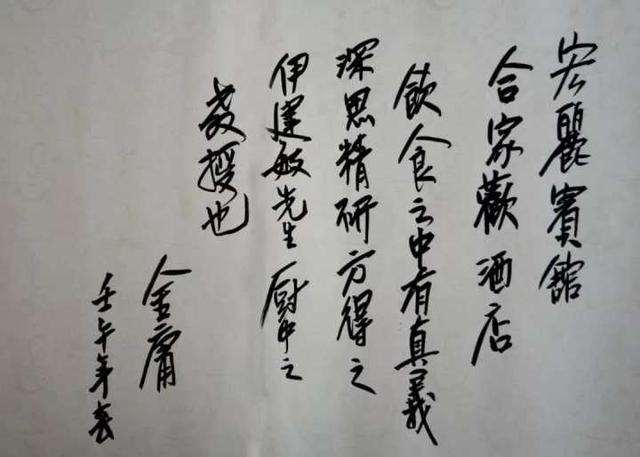 宏麗賓館
合家歡酒店
飲食之中有真義
深思精研方得之
伊建敏先生厨中之
教授也
金庸
壬午年春